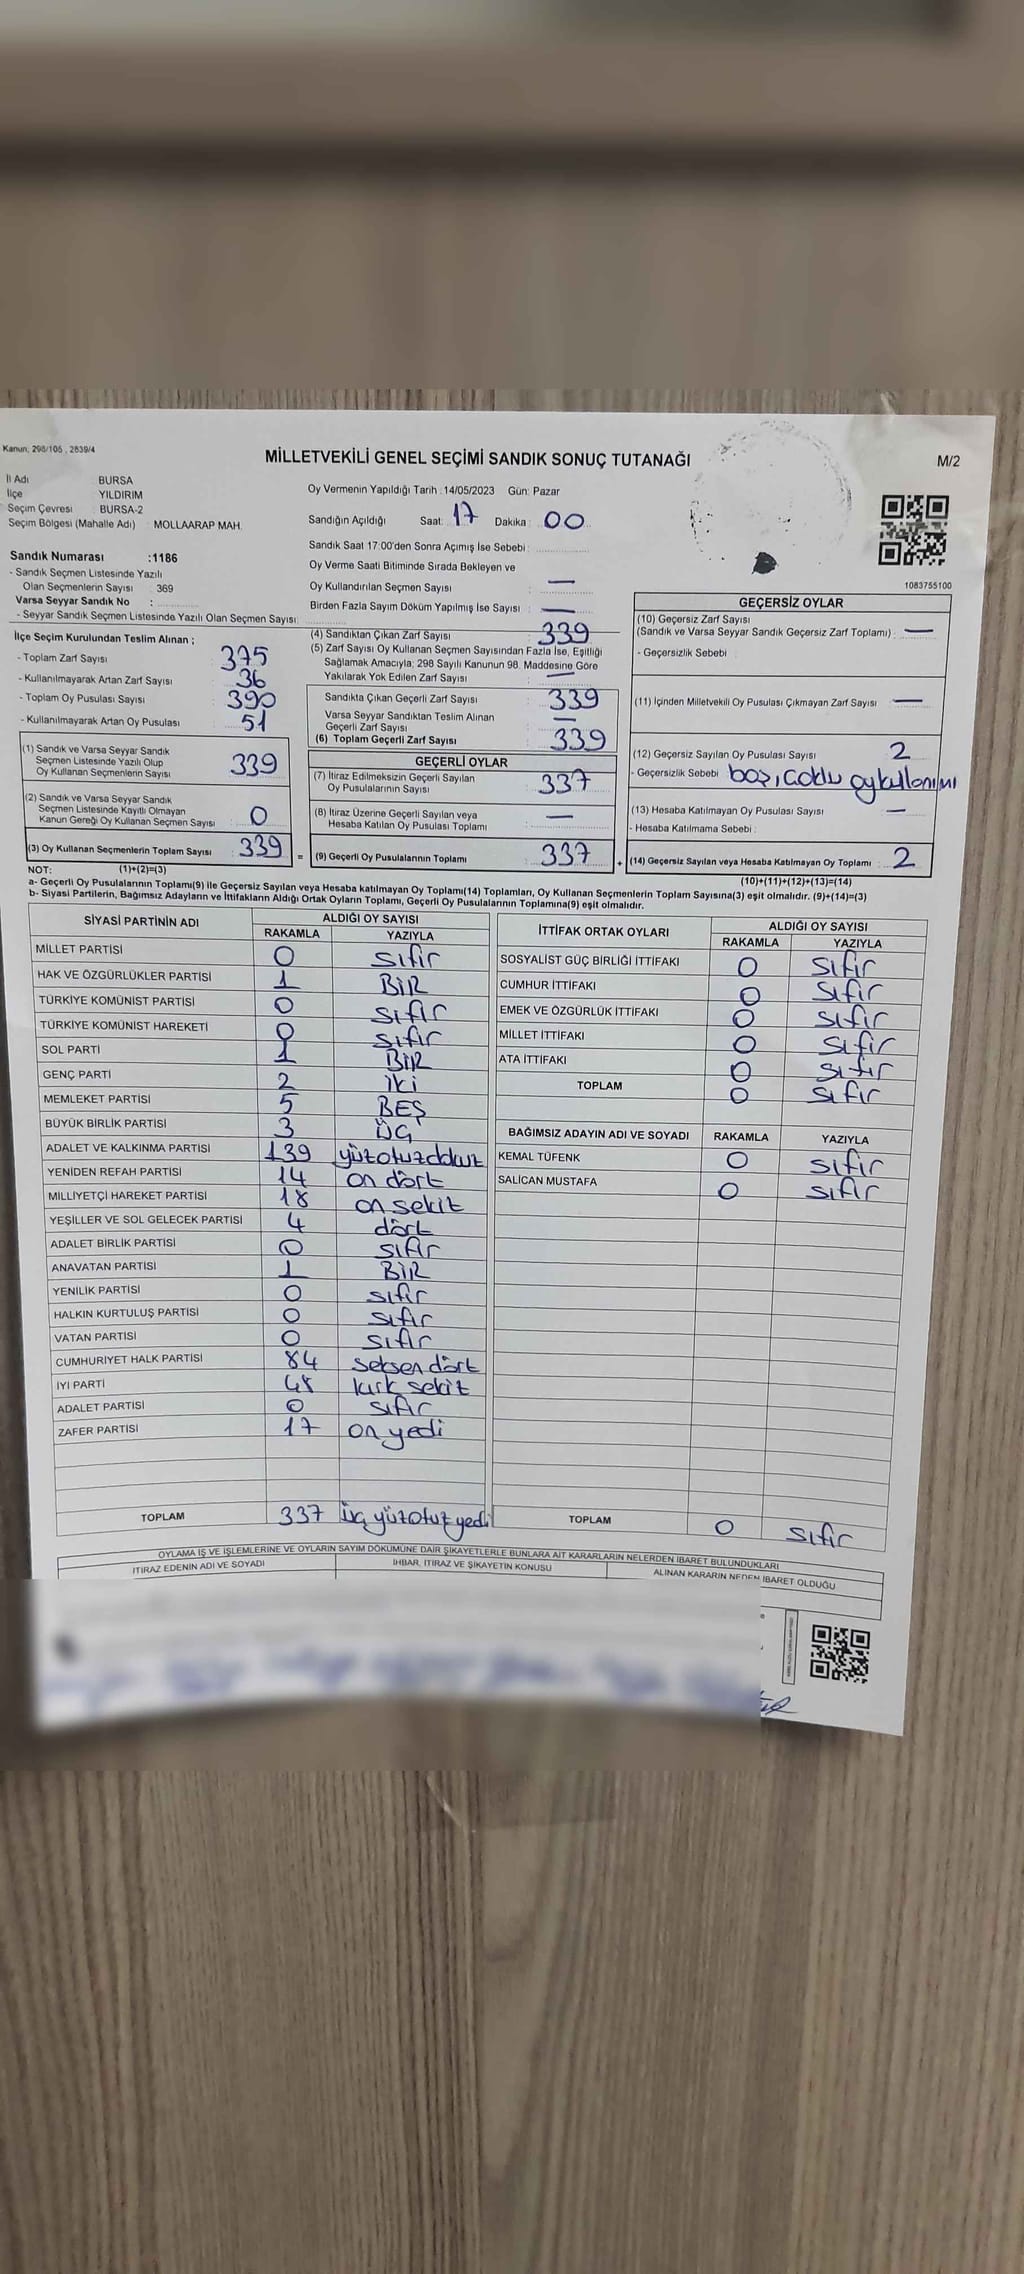 Kanun: 298/105 , 2839/4
MİLLETVEKİLİ GENEL SEÇİMİ SANDIK SONUÇ TUTANAĞI
M/2
İl Adı BURSA
İlçe YILDIRIM
Seçim Çevresi BURSA-2
Seçim Bölgesi (Mahalle Adı) : MOLLAARAP MAH.
Oy Vermenin Yapıldığı Tarih : 14/05/2023 Gün: Pazar
Sandığın Açıldığı Saat: 17 Dakika : 00
Sandık Saat 17:00'den Sonra Açımış İse Sebebi :
Sandık Numarası :1186
- Sandık Seçmen Listesinde Yazılı
Olan Seçmenlerin Sayısı : 369
Varsa Seyyar Sandık No :
- Seyyar Sandık Seçmen Listesinde Yazılı Olan Seçmen Sayısı:
Oy Verme Saati Bitiminde Sırada Bekleyen ve
Oy Kullandırılan Seçmen Sayısı : —
Birden Fazla Sayım Döküm Yapılmış İse Sayısı : —
1083755100
İlçe Seçim Kurulundan Teslim Alınan ;
- Toplam Zarf Sayısı : 375
- Kullanılmayarak Artan Zarf Sayısı : 36
- Toplam Oy Pusulası Sayısı : 390
- Kullanılmayarak Artan Oy Pusulası : 51
(1) Sandık ve Varsa Seyyar Sandık
Seçmen Listesinde Yazılı Olup
Oy Kullanan Seçmenlerin Sayısı : 339
(2) Sandık ve Varsa Seyyar Sandık
Seçmen Listesinde Kayıtlı Olmayan
Kanun Gereği Oy Kullanan Seçmen Sayısı : 0
(3) Oy Kullanan Seçmenlerin Toplam Sayısı : 339 =
(4) Sandıktan Çıkan Zarf Sayısı : 339
(5) Zarf Sayısı Oy Kullanan Seçmen Sayısından Fazla İse, Eşitliği
Sağlamak Amacıyla; 298 Sayılı Kanunun 98. Maddesine Göre
Yakılarak Yok Edilen Zarf Sayısı : —
Sandıkta Çıkan Geçerli Zarf Sayısı : 339
Varsa Seyyar Sandıktan Teslim Alınan
Geçerli Zarf Sayısı : —
(6) Toplam Geçerli Zarf Sayısı : 339
GEÇERLİ OYLAR
(7) İtiraz Edilmeksizin Geçerli Sayılan
Oy Pusulalarının Sayısı : 337
(8) İtiraz Üzerine Geçerli Sayılan veya
Hesaba Katılan Oy Pusulası Toplamı : —
(9) Geçerli Oy Pusulalarının Toplamı : 337 +
GEÇERSİZ OYLAR
(10) Geçersiz Zarf Sayısı
(Sandık ve Varsa Seyyar Sandık Geçersiz Zarf Toplamı) : —
- Geçersizlik Sebebi :
(11) İçinden Milletvekili Oy Pusulası Çıkmayan Zarf Sayısı : —
(12) Geçersiz Sayılan Oy Pusulası Sayısı : 2
- Geçersizlik Sebebi : boş,
(13) Hesaba Katılmayan Oy Pusulası Sayısı : —
- Hesaba Katılmama Sebebi :
(14) Geçersiz Sayılan veya Hesaba Katılmayan Oy Toplamı : 2
NOT: (1)+(2)=(3) (10)+(11)+(12)+(13)=(14)
a- Geçerli Oy Pusulalarının Toplamı(9) ile Geçersiz Sayılan veya Hesaba katılmayan Oy Toplamı(14) Toplamları, Oy Kullanan Seçmenlerin Toplam Sayısına(3) eşit olmalıdır. (9)+(14)=(3)
b- Siyasi Partilerin, Bağımsız Adayların ve İttifakların Aldığı Ortak Oyların Toplamı, Geçerli Oy Pusulalarının Toplamına(9) eşit olmalıdır.
SİYASİ PARTİNİN ADI ALDIĞI OY SAYISI
RAKAMLA YAZIYLA
MİLLET PARTİSİ 0 sıfır
HAK VE ÖZGÜRLÜKLER PARTİSİ 1 BİR
TÜRKİYE KOMÜNİST PARTİSİ 0 sıfır
TÜRKİYE KOMÜNİST HAREKETİ 0 sıfır
SOL PARTİ 1 BİR
GENÇ PARTİ 2 iki
MEMLEKET PARTİSİ 5 BEŞ
BÜYÜK BİRLİK PARTİSİ 3 ÜÇ
ADALET VE KALKINMA PARTİSİ 139 yüzotuzdokuz
YENİDEN REFAH PARTİSİ 14 on dört
MİLLİYETÇİ HAREKET PARTİSİ 18 on sekiz
YEŞİLLER VE SOL GELECEK PARTİSİ 4 dört
ADALET BİRLİK PARTİSİ 0 sıfır
ANAVATAN PARTİSİ 1 BİR
YENİLİK PARTİSİ 0 sıfır
HALKIN KURTULUŞ PARTİSİ 0 sıfır
VATAN PARTİSİ 0 sıfır
CUMHURİYET HALK PARTİSİ 84 seksen dört
İYİ PARTİ 48 kırk sekiz
ADALET PARTİSİ 0 sıfır
ZAFER PARTİSİ 17 on yedi
TOPLAM 337 üç yüzotuz yedi
İTTİFAK ORTAK OYLARI ALDIĞI OY SAYISI
RAKAMLA YAZIYLA
SOSYALİST GÜÇ BİRLİĞİ İTTİFAKI 0 sıfır
CUMHUR İTTİFAKI 0 sıfır
EMEK VE ÖZGÜRLÜK İTTİFAKI 0 sıfır
MİLLET İTTİFAKI 0 sıfır
ATA İTTİFAKI 0 sıfır
TOPLAM 0 sıfır
BAĞIMSIZ ADAYIN ADI VE SOYADI RAKAMLA YAZIYLA
KEMAL TÜFENK 0 sıfır
SALİCAN MUSTAFA 0 sıfır
TOPLAM 0 sıfır
OYLAMA İŞ VE İŞLEMLERİNE VE OYLARIN SAYIM DÖKÜMÜNE DAİR ŞİKAYETLERLE BUNLARA AİT KARARLARIN NELERDEN İBARET BULUNDUKLARI
İTİRAZ EDENİN ADI VE SOYADI İHBAR, İTİRAZ VE ŞİKAYETİN KONUSU ALINAN KARARIN NEDEN İBARET OLDUĞU